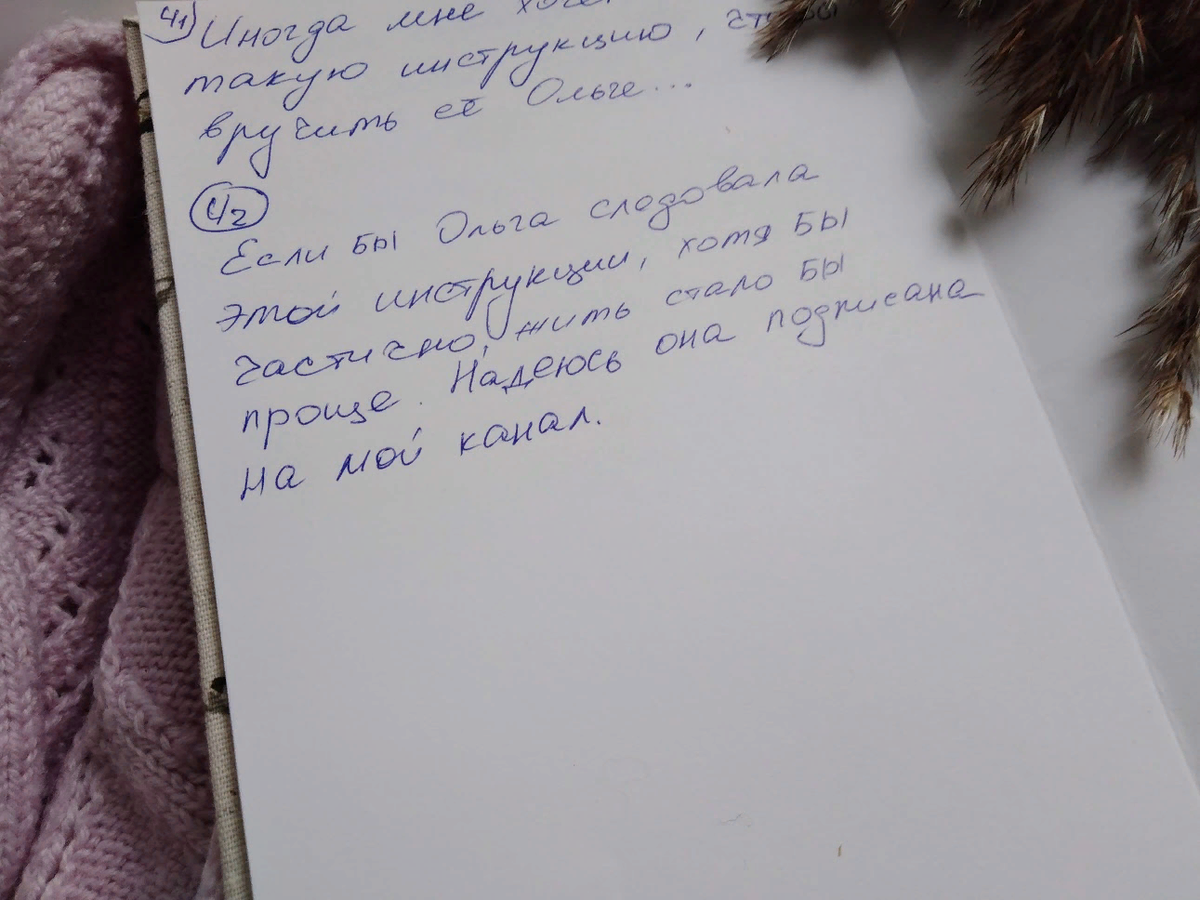 41) Иногда мне
такую инструкцию,
вручить её Ольге...
42
Если бы Ольга следовала
этой инструкции, хотя бы
частично, жить стало бы
проще. Надеюсь она подписана
на мой канал.